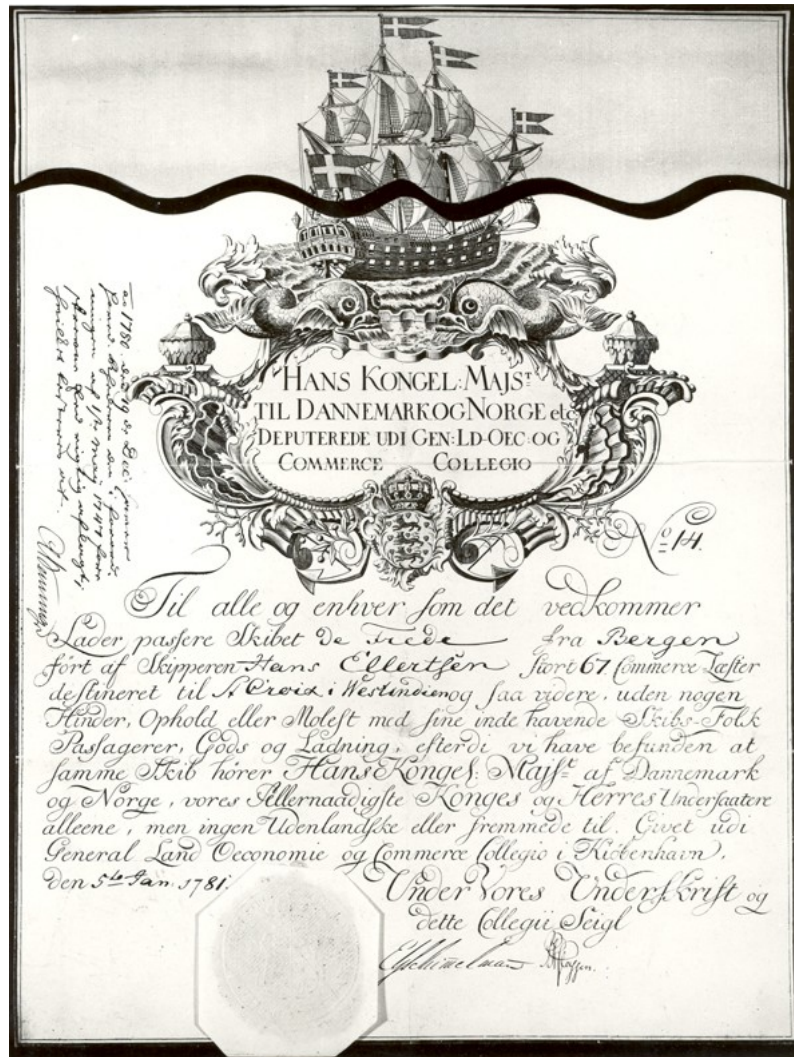 HANS KONGEL: MAJST
TIL DANNEMARK OG NORGE etc
DEPUTEREDE UDI GEN: LD-OEC: OG
COMMERCE COLLEGIO
No 14.
Til alle og enhver som det vedkommer
Lader passere Skibet De Frede fra Bergen
ført af Skipperen Hans Ellertsen stort 67 Commerce Læster
destineret til St Croix i Westindien og saa videre, uden nogen
Hinder, Ophold eller Molest med sine inde havende Skibs-Folk
Passagerer, Gods og Ladning, efterdi vi have befunden at
samme Skib hører Hans Kongel: Majst af Dannemark
og Norge, vores Allernaadigste Konges og Herres Undersaatere
alleene, men ingen Udenlandske eller fremmede til. Givet udi
General Land Oeconomie og Commerce Collegio i Kiöbenhavn,
den 5te Jan: 1781.
Under Vores Underskrift og
dette Collegii Seigl
Ao 1780 den 19 Dec: